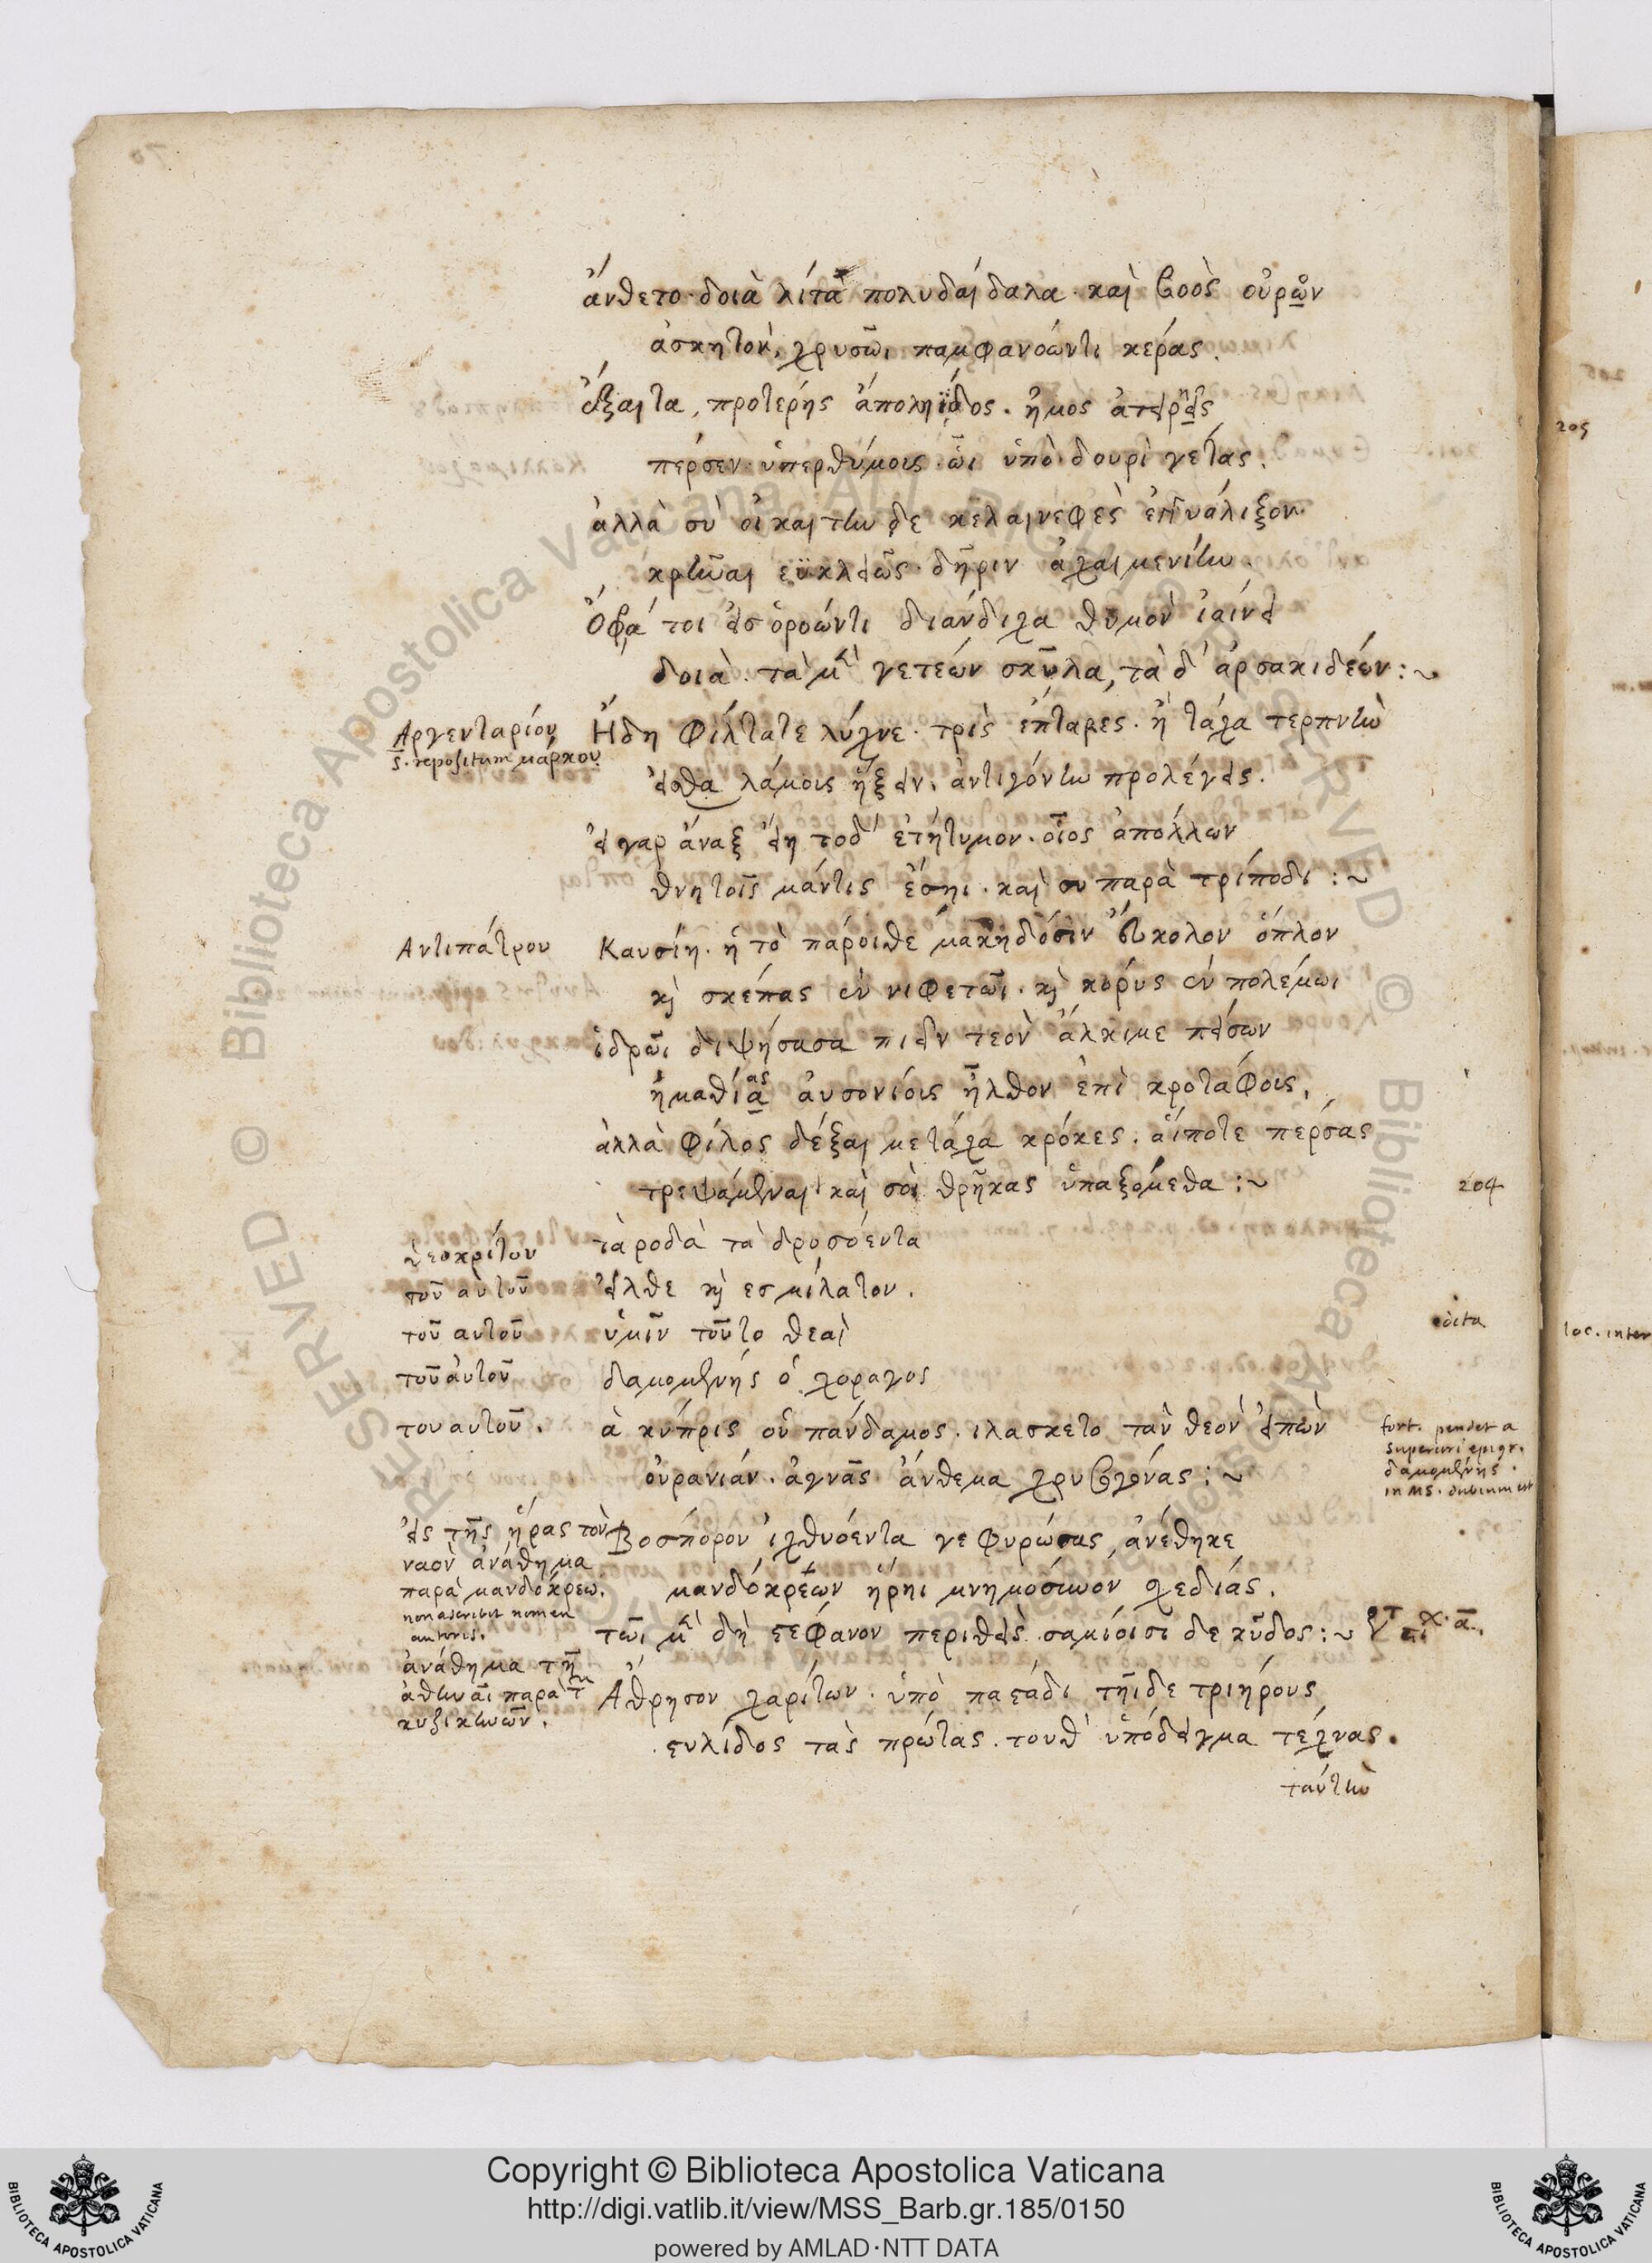 ἄνθετο· δοιὰ λίτα πολυδαίδαλα· καὶ βοὸς οὐρῶν
ἀσκητὸν, χρυσῶι παμφανοώντι κέρας.
ἔξαιτα, προτέρης ἀποληΐδος. ἦμος ἀτειρὴς
πέρσεν· ὑπερθύμοις· ὧι ὑπὸ δουρὶ γέτας.
ἀλλὰ σὺ οἱ καὶ τὴν δε κελαινεφὲς ἐγγυάλιξον
κρῖναι εϋκλειῶς· δῆριν ἀχαιμενίην.
Ὄφρα τοι εἰσορόωντι διάνδιχα θυμὸν ἰαίνει
δοιά· τὰ μὲν γετέων σκῦλα, τὰ δ' ἀρσακιδέων:~
Αργενταρίου
s. repositum μάρκου
Ηδη φίλτατε λύχνε· τρὶς ἔπταρες. ἢ τάχα τερπνὴν
εἰσθα λάμοις ἥξειν. ἀντιγόνην προλέγεις.
εἰ γαρ ἄναξ εἴη τοδ' ἐτήτυμον. οἷος ἀπόλλων
θνητοῖς μάντις ἔσηι. καὶ συ παρὰ τρίποδι:~
Αντιπάτρου
Καυσίη· ἡ τὸ πάροιθε μακηδόσιν εὔκολον ὅπλον
καὶ σκέπας ἐν νιφετῶι. καὶ κόρυς ἐν πολέμωι
ἱδρῶι διψήσασα πιεῖν τεὸν ἄλκιμε πείσων
ας
ἠμαθία αὐσονίοις ἦλθον ἐπὶ κροτάφοις.
ἀλλὰ φίλος δέξαι με· τάχα κρόκες. αἵ ποτε πέρσας
τρεψάμεναι· καὶ σοὶ θρῇκας ὑπαξόμεθα:~
204
θεοκρίτου
τὰ ροδὰ τὰ δροσόεντα
τοῦ αὐτοῦ
εἶλθε καὶ ες μίλατον.
τοῦ αυτοῦ
ὑμῖν τοῦτο θεαὶ
edita
τοῦ αὐτοῦ
δαμομένης ὁ χοραγος
του αυτοῦ.
ἁ κύπρις οὐ πάνδαμος. ιλασκετο τὰν θεὸν εἰπὼν
fort. pendet a
superiori epigr.
δαμομένης.
in MS. dubium est
οὐρανιάν. ἁγνᾶς ἄνθεμα χρυσογόνας:~
εἰς τῆς ἥρας τὸν
ναὸν ἀνάθημα
παρὰ μανδοκρέω.
non adscribit nomen
autoris.
Βοσπορον ἰχθυόεντα γεφυρώσας, ἀνέθηκε
μανδόκρέων ἥρηι μνημόσυνον σχεδίας.
τῶι μὲν δὴ στέφανον περιθεὶς. σαμίοισι δε κῦδος:~
ἀνάθημα τῇ
ἀθηνᾶι παρὰ τῶν
κυζικηνῶν.
Αθρησον χαρίτων. ὑπὸ παστάδι τῆιδε τριήρους
στυλίδος τὰς πρώτας. τουθ' ὑπόδειγμα τέχνας.
ταύτην
205
Copyright © Biblioteca Apostolica Vaticana
http://digi.vatlib.it/view/MSS_Barb.gr.185/0150
powered by AMLAD·NTT DATA
BIBLIOTECA APOSTOLICA VATICANA
BIBLIOTECA APOSTOLICA VATICANA